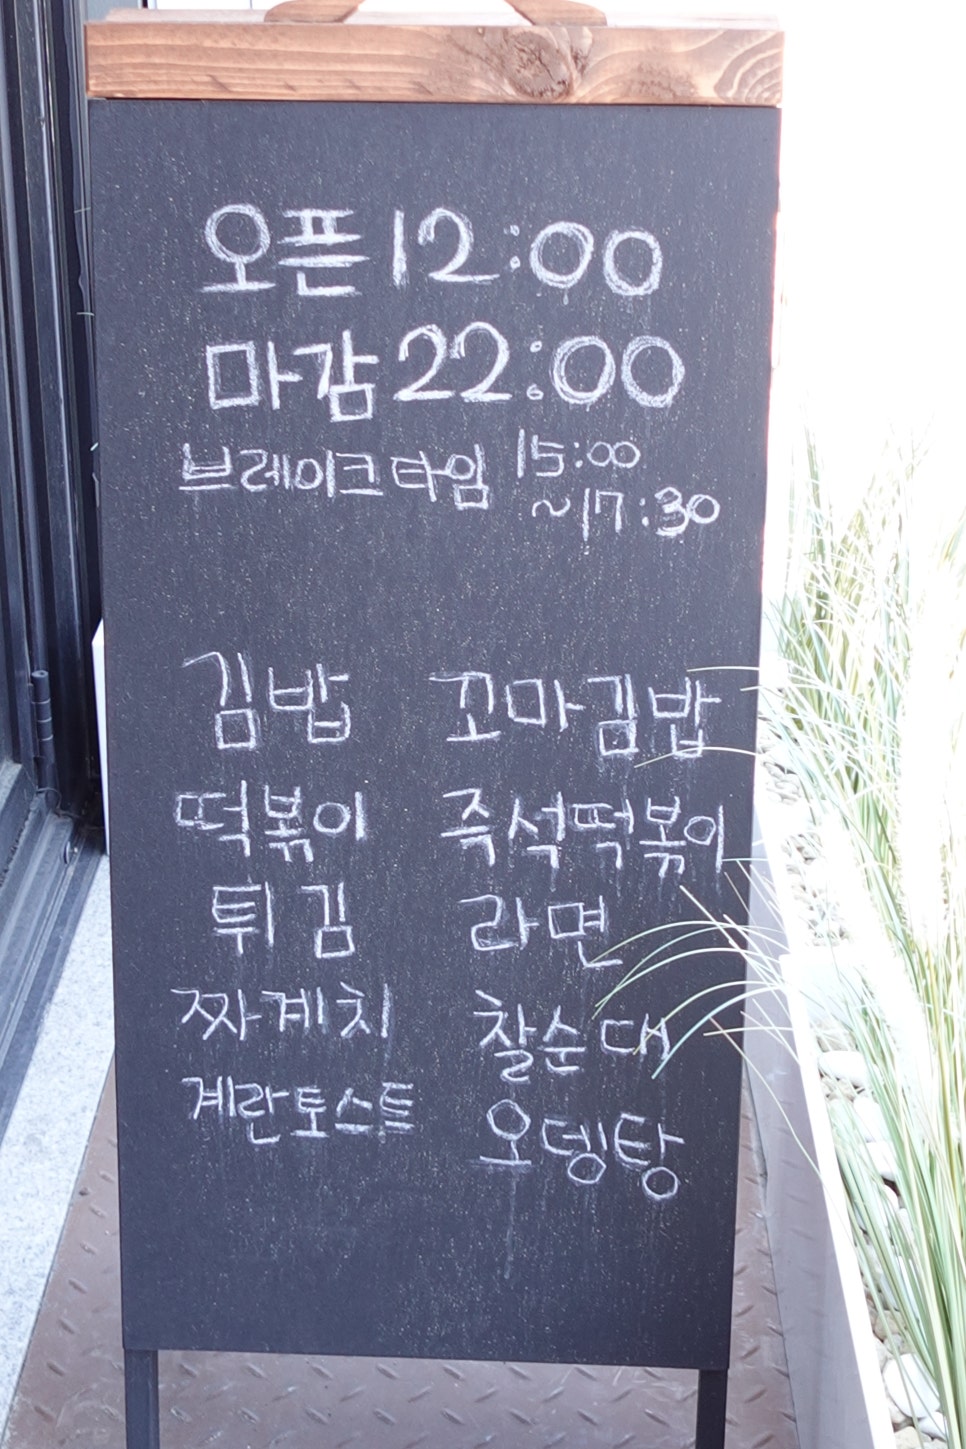 오픈 12:00
마감 22:00
브레이크타임 15:00
~17:30
김밥 꼬마김밥
떡볶이 즉석떡볶이
튀김 라면
짜계치 찰순대
계란토스트 오뎅탕